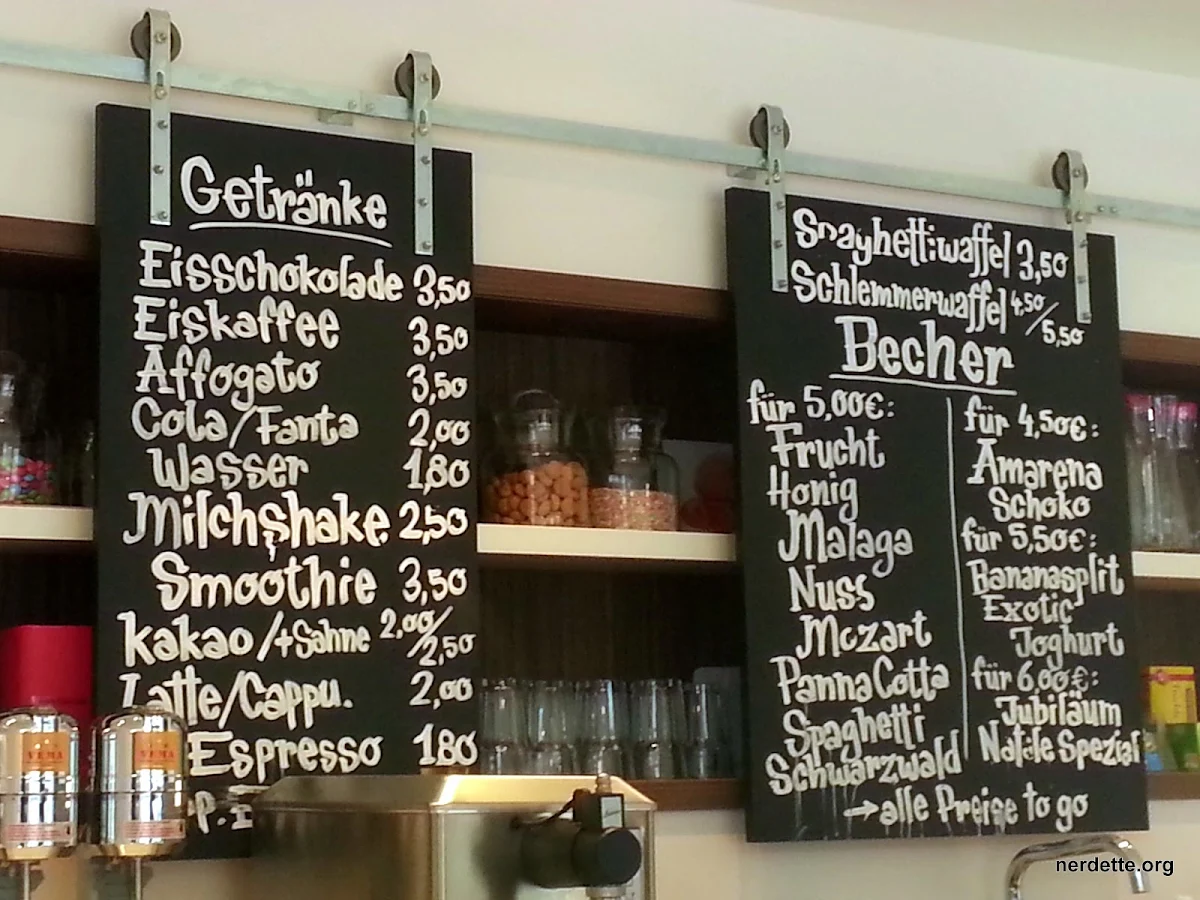 Getränke
Eisschokolade 3,50
Eiskaffee 3,50
Affogato 3,50
Cola/Fanta 2,00
Wasser 1,80
Milchshake 2,50
Smoothie 3,50
Kakao /+Sahne 2,00/2,50
Latte/Cappu. 2,00
Espresso 1,80
Spaghettiwaffel 3,50
Schlemmerwaffel 4,50/5,50
Becher
für 5,00€:
Frucht
Honig
Malaga
Nuss
Mozart
Panna Cotta
Spaghetti
Schwarzwald
für 4,50€:
Amarena
Schoko
für 5,50€:
Bananasplit
Exotic
Joghurt
für 6,00€:
Jubiläum
Spezial
→alle Preise to go
VEMA
VEMA
nerdette.org